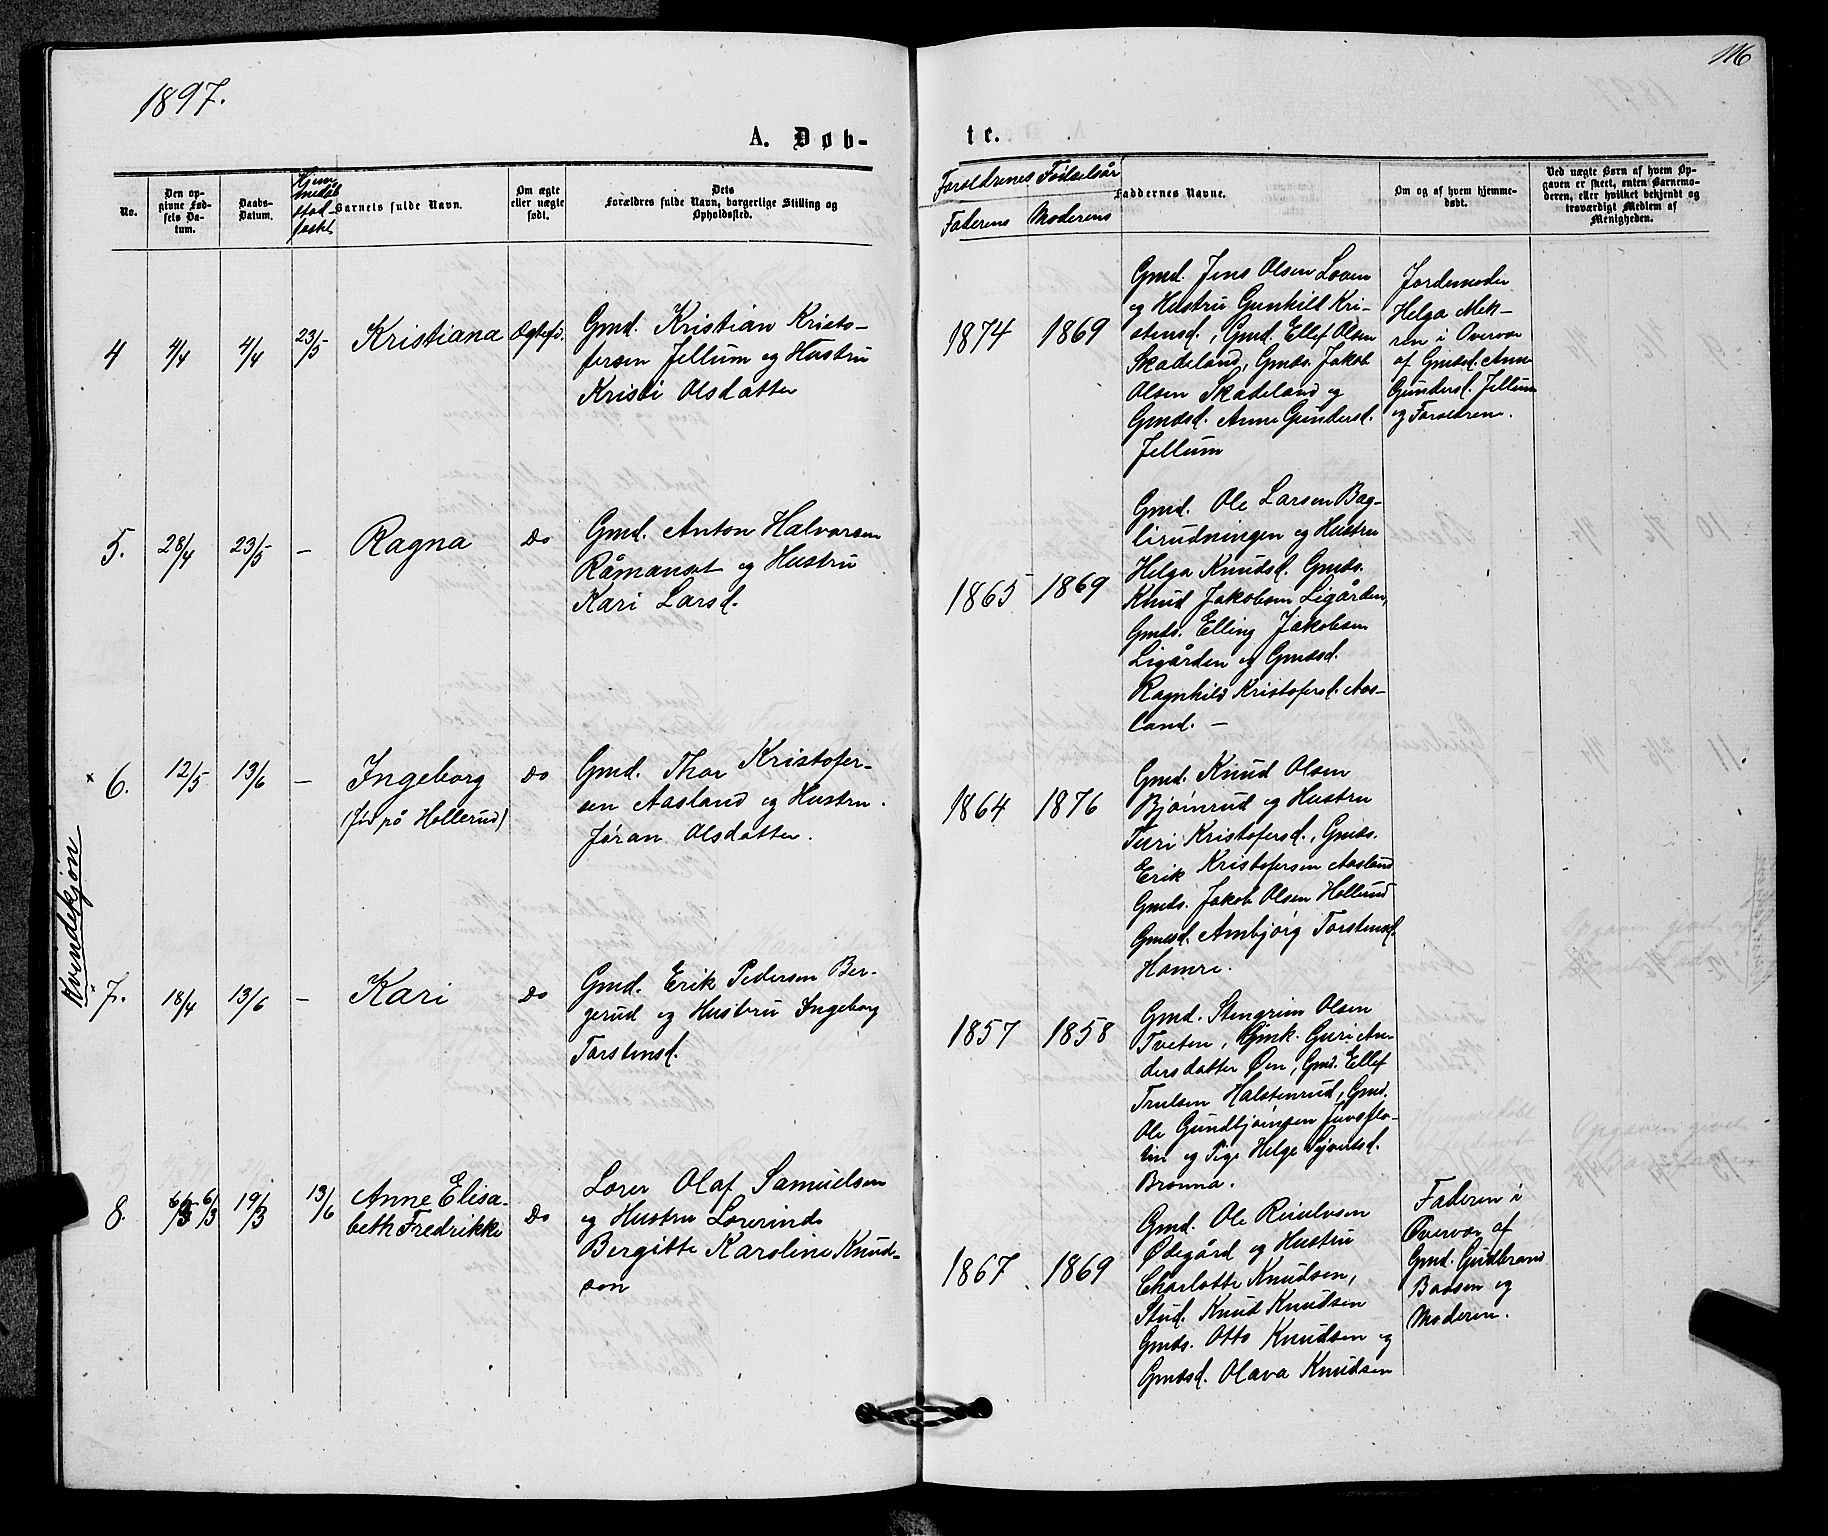 1897.
116
A. Døb-
te.
No.
Den op-
givne Fød-
sels Da-
tum.
Daabs-
Datum.
Hjem
medøb
stad-
fæstet
Barnets fulde Navn.
Om ægte
eller uægte
født.
Dets
Forældres fulde Navn, borgerlige Stilling og
Opholdssted.
Forældrenes Fødselsår
Faderens
Moderens
Faddernes Navne.
Om og af hvem hjemme-
døbt.
Ved uægte Børn af hvem Op-
gaven er skeet, enten Barnemo-
deren, eller hvilket bekjendt og
troværdigt Medlem af
Menigheden.
Kvindekjøn
4
4/4
4/4
23/5
Kristiana
Ægtefd.
Gmd. Kristian Kristo-
fersen Jellum og Hustru
Kristi Olsdatter
1874
1869
Gmd. Jens Olsen Loven
og Hustru Gunhill Kri-
stensd., Gmd. Ellef Olsen
Skadeland, Gmds. Jakob
Olsen Skadeland og
Gmdsd. Anne Gundersd.
Jellum
Jordemoder
Helga Mek-
ren i Overvær
af Gmdsd. Anne
Gundersd. Jellum
og Forældrene.
5.
28/4
23/5
—
Ragna
Do
Gmd. Anton Halvorsen
Råmanset og Hustru
Kari Larsd.
1865
1869
Gmd. Ole Larsen Bag-
lirudningen og Hustru
Helga Knudsd. Gmds.
Knud Jakobsen Ligården,
Gmds. Elling Jakobsen
Ligården og Gmdsd.
Ragnhild Kristofersd. Aas-
land. —
× 6.
12/5
13/6
—
Ingeborg
(fød på Hollerud)
Do
Gmd. Thor Kristofer-
sen Aasland og Hustru
Jøran Olsdatter.
1864
1876
Gmd. Knud Olsen
Bjøinrud og Hustru
Turi Kristofersd., Gmds.
Erik Kristofersen Aasland
Gmds. Jakob Olsen Hollerud
Gmdsd. Ambjørg Torstensd.
Hamre.
7.
18/4
13/6
—
Kari
Do
Gmd. Erik Pedersen Ber-
gerud og Hustru Ingeborg
Torstensd.
1857
1858
Gmd. Stengrim Olsen
Tveten, Gmk. Guri An-
dersdatter Øen, Gmd. Ellef
Trulsen Halstenrud, Gmd.
Ole Gundbjøinsen
og Pige Helge Syvertsd.
Brønna.
8.
6/3
19/3
13/6
Anne Elisa-
beth Fredrikke
Do
Lærer Olaf Samuelsen
og Hustru Lærerinde
Bergitte Karoline Knud-
sen
1867
1869
Gmd. Ole Reiulvsen
Ødegård og Hustru
Charlotte Knudsen,
Stud. Knud Knudsen
Gmds. Otto Knudsen og
Gmdsd. Olava Knudsen
Faderen i
Overvær af
Gmd. Gudbrand
Baasen og
Moderen.